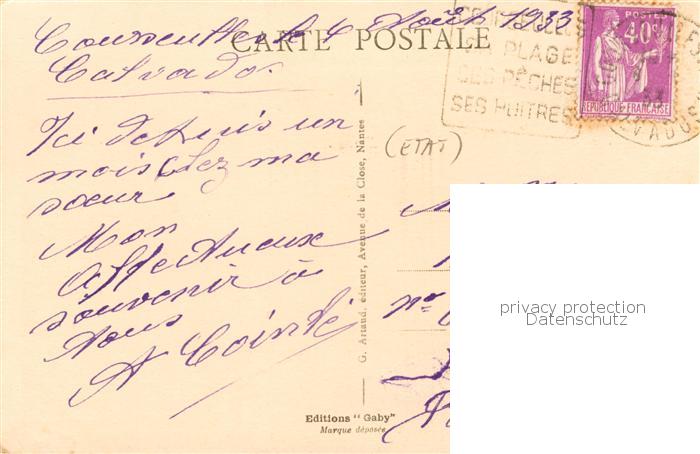 Courseulles le 4 Août 1933
Calvados
CARTE POSTALE
Ici depuis un
mois chez ma
sœur
Mon
affectueux
souvenir à
tous
A Cointé
(ETAT)
COURSEULLES
SA PLAGE
SES PÊCHES
SES HUITRES
POSTES
40c
REPUBLIQUE FRANÇAISE
CALVADOS
G. Artaud, éditeur, Avenue de la Close, Nantes
Editions "Gaby"
Marque déposée
privacy protection
Datenschutz